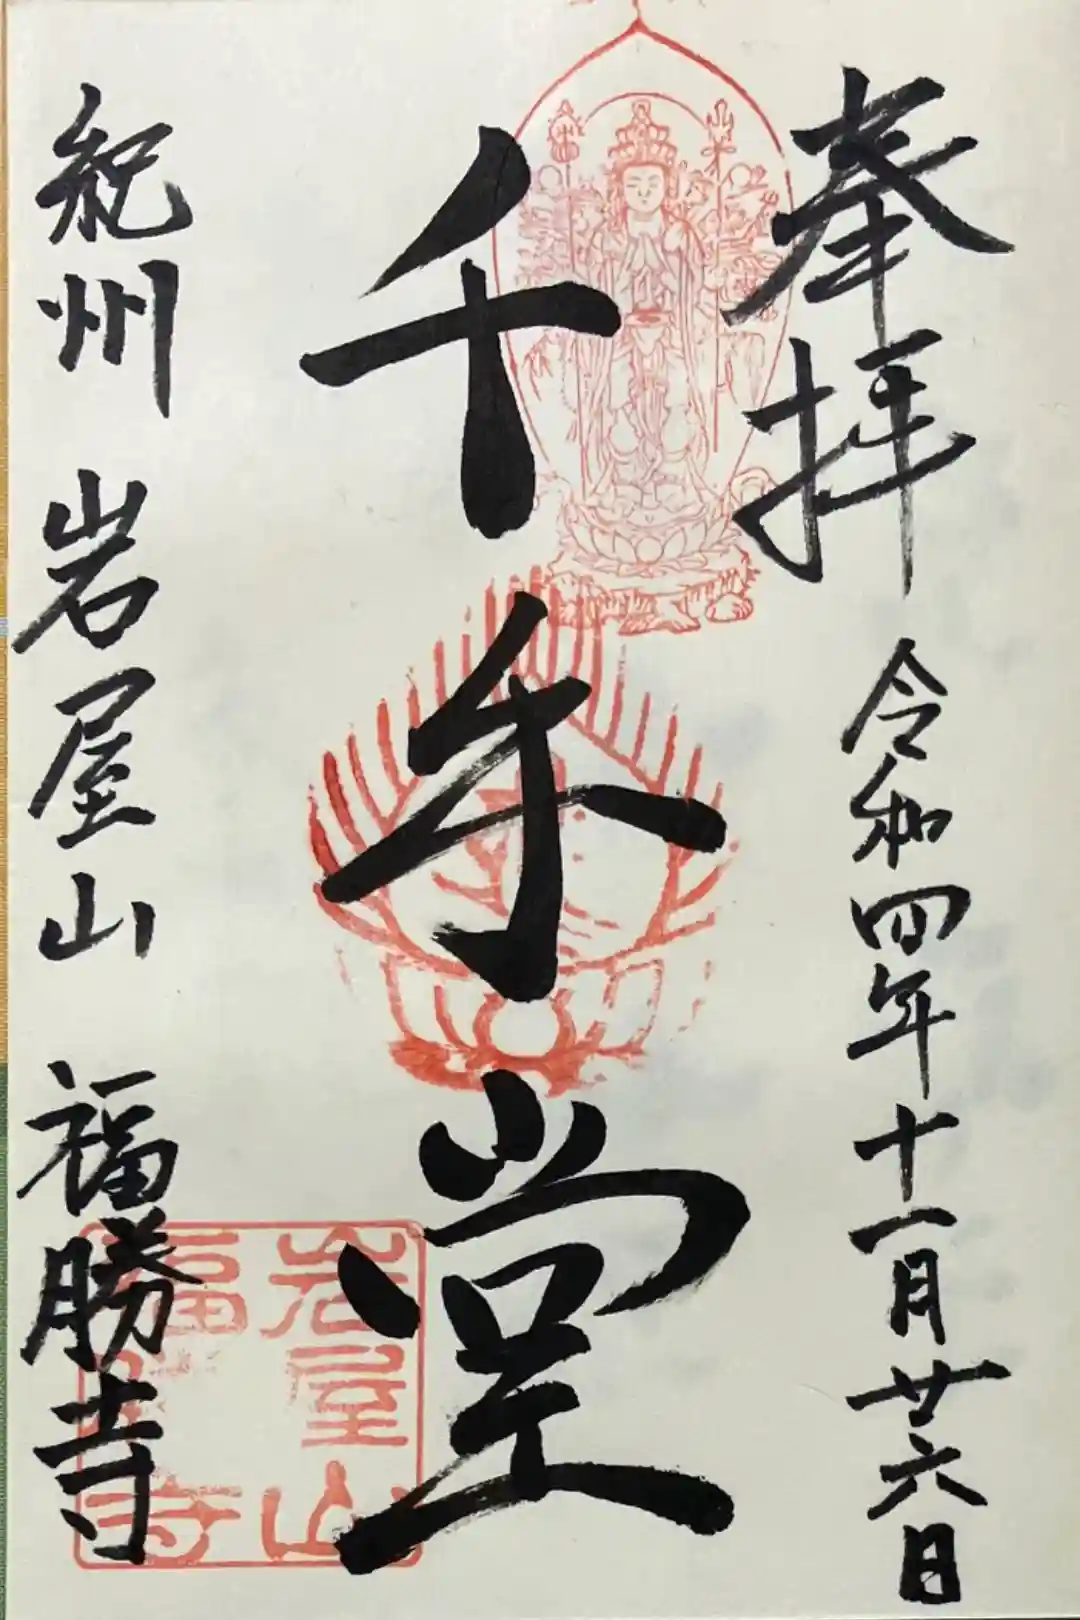 奉拝 令和四年十一月廿六日
千手堂
紀州 岩屋山 福勝寺
岩屋山
福勝寺